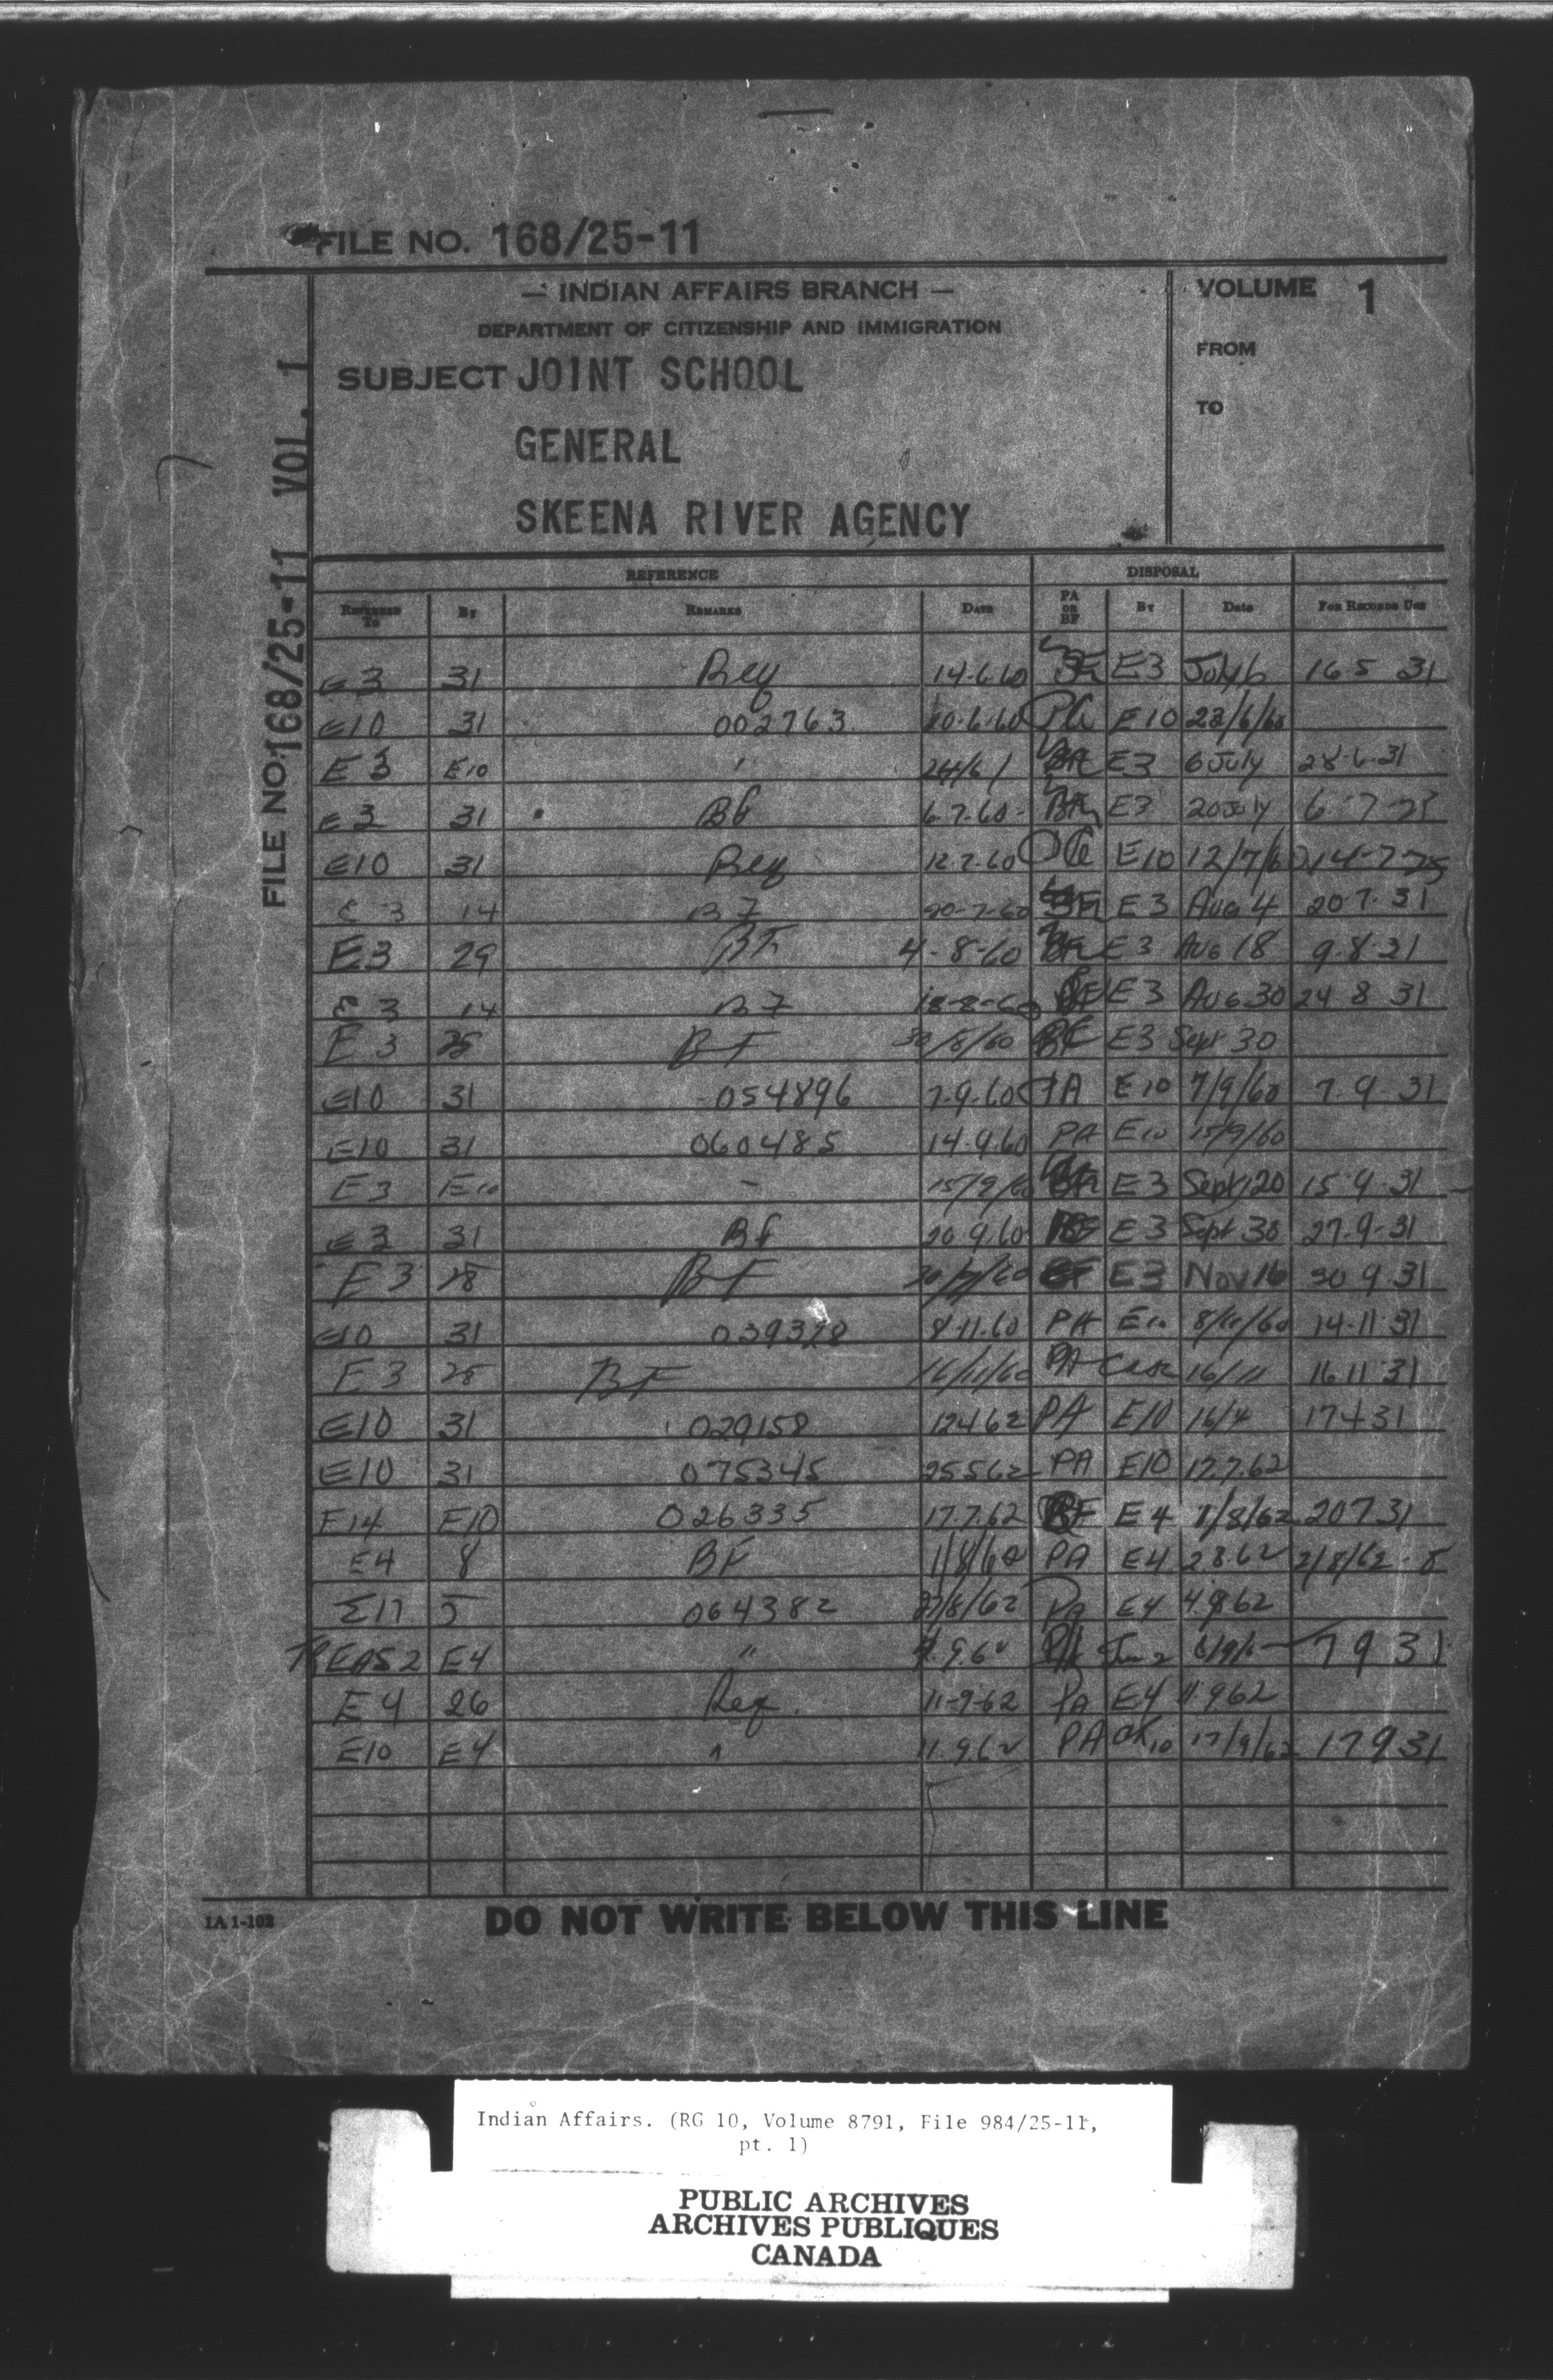 FILE NO. 168/25-11
— INDIAN AFFAIRS BRANCH —
DEPARTMENT OF CITIZENSHIP AND IMMIGRATION
SUBJECT JOINT SCHOOL
GENERAL
SKEENA RIVER AGENCY
VOLUME 1
FROM
TO
FILE NO. 168/25-11 VOL. 1
REFERENCE DISPOSAL
REFERRED TO BY REMARKS DATE PA OR BF BY Date FOR RECORDS USE
E3 31 Req 14-6-60 E3 July 6 16 5 31
E10 31 002763 20-6-60 PA E10 23/6/60
E3 E10 " 24/6/ E3 6 July 28-6-31
E3 31 Bf 6-7-60 E3 20 July 6-7-31
E10 31 Req 12-7-60 PA E10 12/7/60 14-7-
E3 14 BF 20-7-60 E3 Aug 4 20 7 31
E3 29 BF 4-8-60 E3 Aug 18 9-8-31
E3 14 BF 18-8-60 BF E3 Aug 30 24 8 31
E3 BF 30/8/60 BF E3 Sept 30
E10 31 054896 7-9-60 PA E10 7/9/60 7 9 31
E10 31 060485 14-9-60 PA E10 15/9/60
E3 E10 - 15/9/60 E3 Sept 20 15-9-31
E3 31 Bf 20 9 60 BF E3 Sept 30 27-9-31
E3 28 BF 30/9/60 BF E3 Nov 16 30 9 31
E10 31 039378 8-11-60 PA E10 8/11/60 14-11-31
E3 28 BF 16/11/60 PA 16/11 16 11 31
E10 31 029158 12 4 62 PA E10 16/4 17 4 31
E10 31 075345 25 5 62 PA E10 17.7.62
E14 E10 026335 17.7.62 BF E4 1/8/62 20 7 31
E4 8 BF 1/8/62 PA E4 2 8 62 2/8/62 - 8
E17 5 064382 27/8/62 PA E4 4 9 62
REAS 2 E4 " 4.9.62 PA 7 9 31
E4 26 Req. 11-9-62 PA E4 11 9 62
E10 E4 " 11.9.62 PA 17/9/62 17 9 31
IA 1-102
DO NOT WRITE BELOW THIS LINE
Indian Affairs. (RG 10, Volume 8791, File 984/25-11,
pt. 1)
PUBLIC ARCHIVES
ARCHIVES PUBLIQUES
CANADA